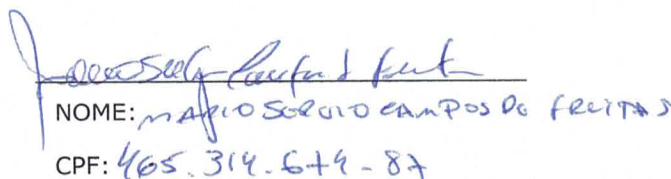 NOME: MARIO SERGIO CAMPOS DE FREITAS
CPF: 465.314.674-87